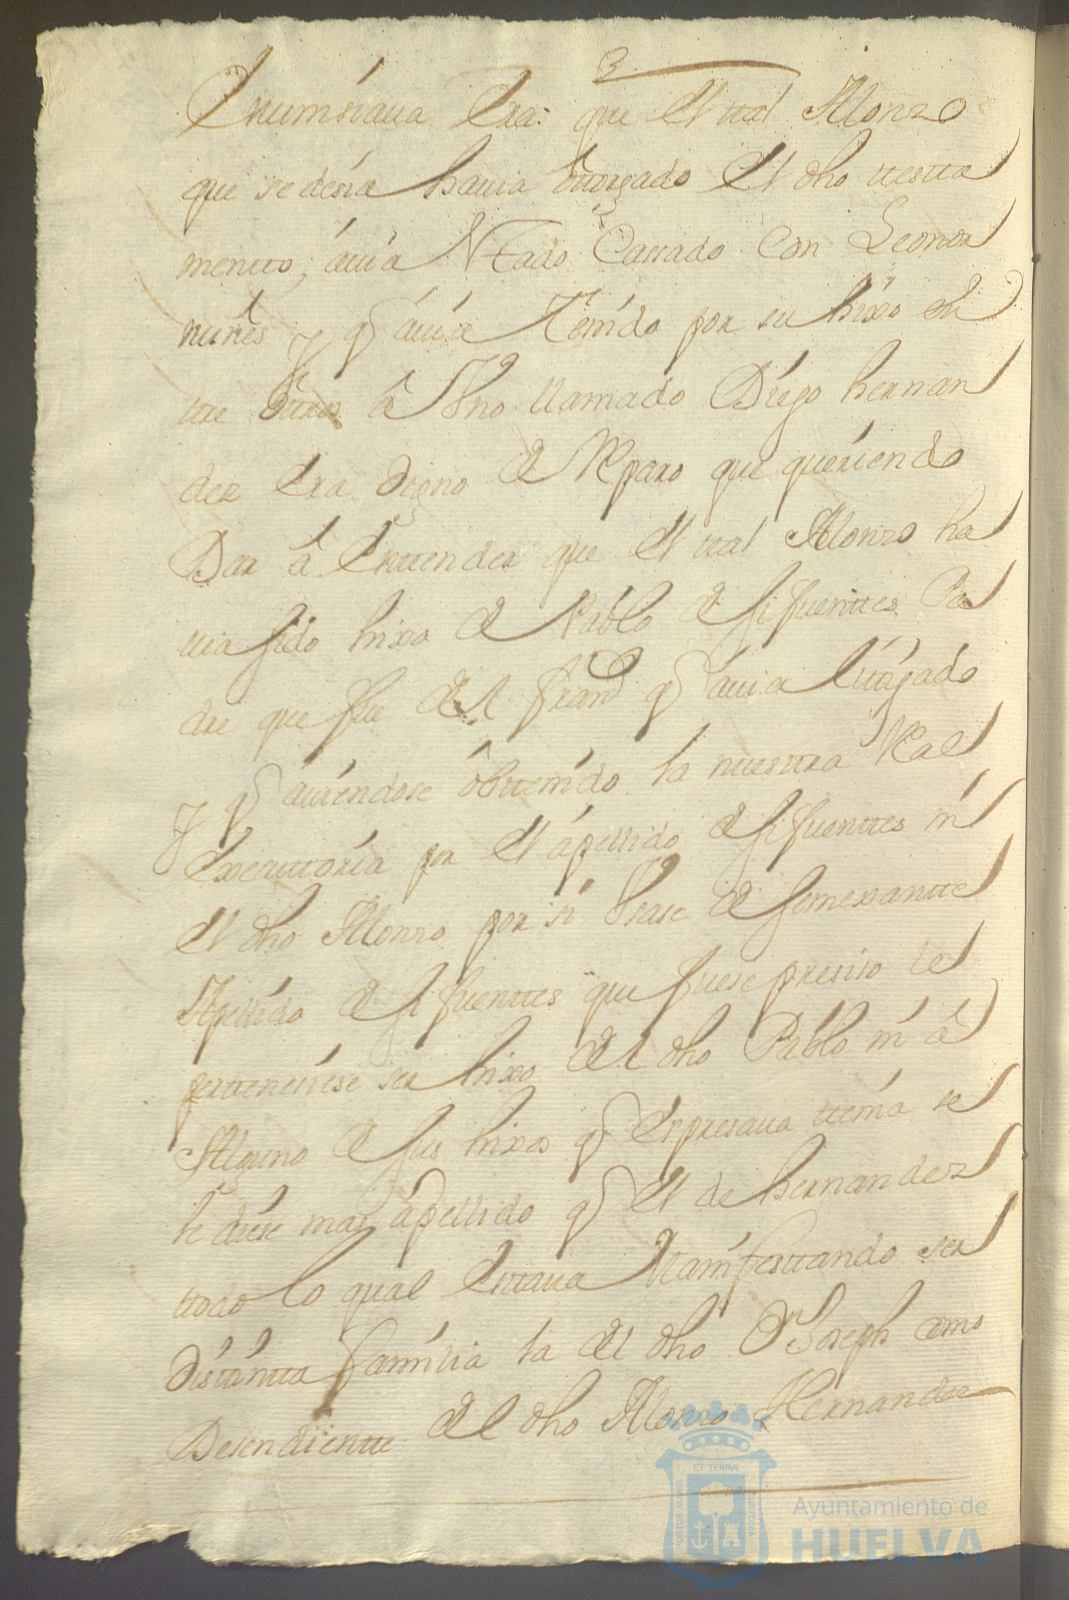 3
enumsiava Era: que El ttal Alonzo
que se desia havia ottorgado El dho ttestta
mentto, avia Estado Cassado Con Leonor
nuñes y q avia Tenido por su hixo en
ttre ottros â Vno llamado Diego hernan
dez Era digno de Reparo que queriendo
Dar â Enttender que El ttal Alonzo ha
via sido hixo de Pablo de sifuenttes Pa
dre que fue del q avia Littigado
y q aviendose obttenido la nuesttra Real
Executtoria por El apellido de sifuenttes ni
El dho Alonzo por si Vsase de semexantte
Apellido de sifuenttes que fuese presiso le
perttenesiese ser hixo del dho Pablo ni â
Alguno de sus hixos q Expresava ttenia se
le diese mas apellido q El de hernandez
ttodo lo qual Esttava Manifesttando ser
disttintta familia la del dho Dn Joseph como
Desendientte del dho Alonzo Hernandez
PORTUS MARIS ET TERRAE CUSTODIA
Ayuntamiento de
HUELVA